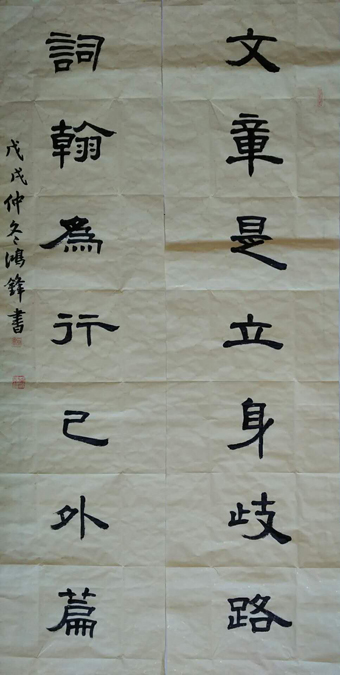 文章是立身歧路
詞翰為行己外篇
戊戌仲冬鴻鋒書